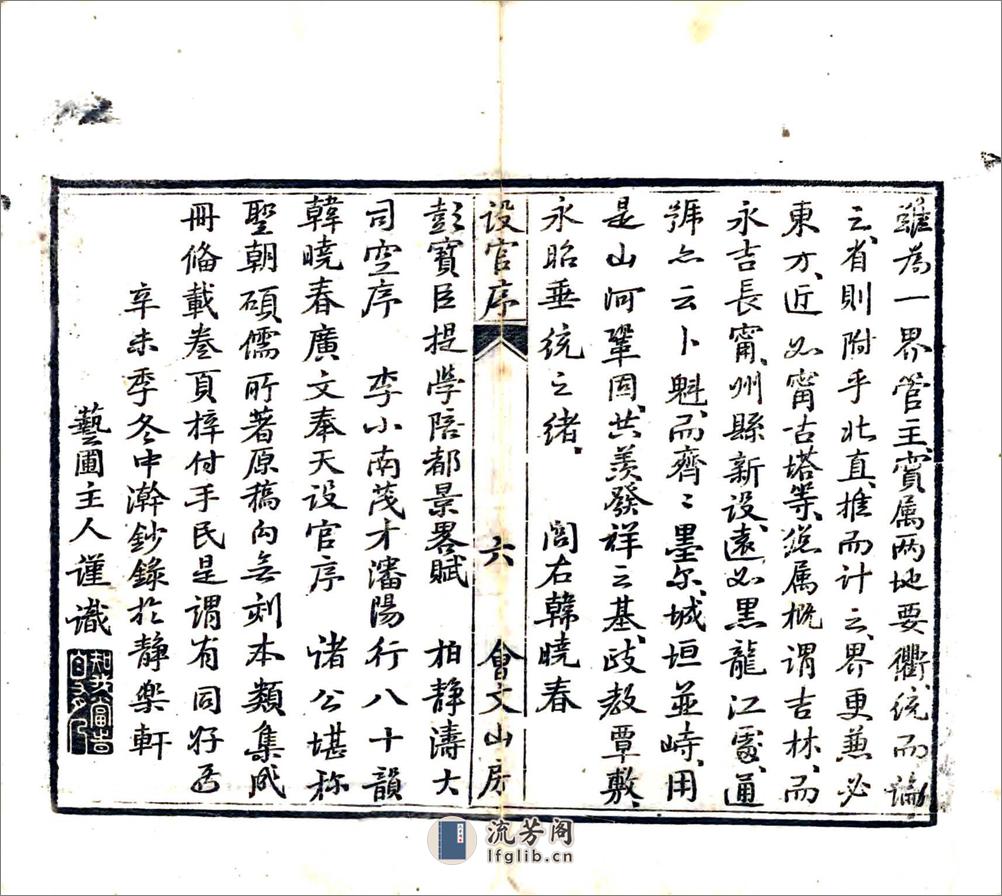 雖為一界管主實属两地要衢統而論
之省則附乎北直推而計之界更兼必
東方近如甯古塔等總属概謂吉林而
永吉長甯州縣新設遠如黑龍江處通
號亦云卜魁而齊〻墨尔城垣並峙用
是山河鞏固共羨發祥之基歧教覃敷
永昭垂統之緒 閭右韓曉春
设官序 六 會文山房
彭寳臣提學陪都景畧賦 柏静濤大
司空序 李小南茂才瀋陽行八十韻
韓曉春廣文奉天设官序 诸公堪称
聖朝碩儒所著原稿向無刻本類集成
冊俻載卷頁梓付手民是謂有同好焉
辛未季冬中澣鈔錄於静樂軒
藝圃主人谨識
流芳阁
lfglib.cn